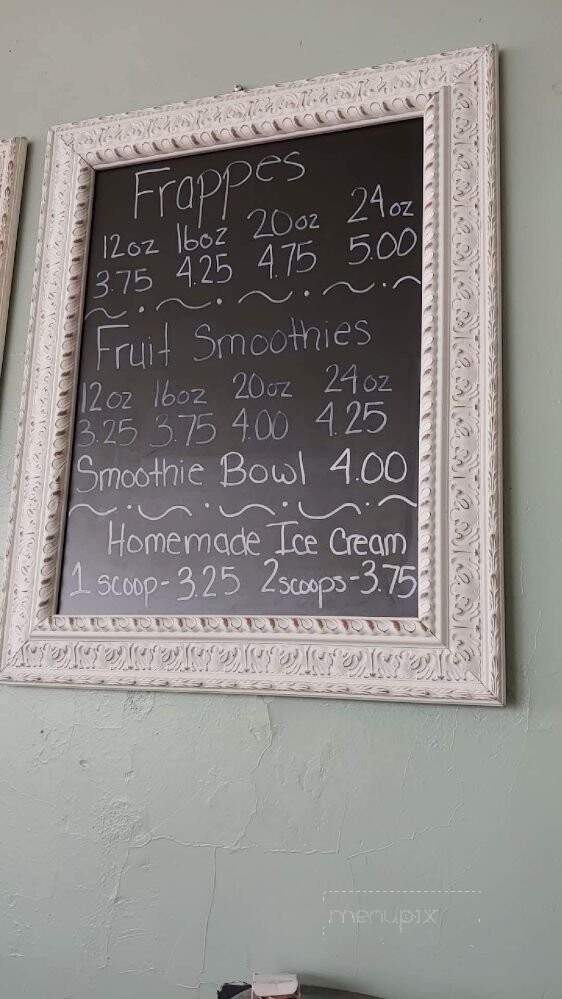 Frappes
12oz 16oz 20oz 24oz
3.75 4.25 4.75 5.00
Fruit Smoothies
12oz 16oz 20oz 24oz
3.25 3.75 4.00 4.25
Smoothie Bowl 4.00
Homemade Ice Cream
1 scoop - 3.25 2 scoops - 3.75
menupix